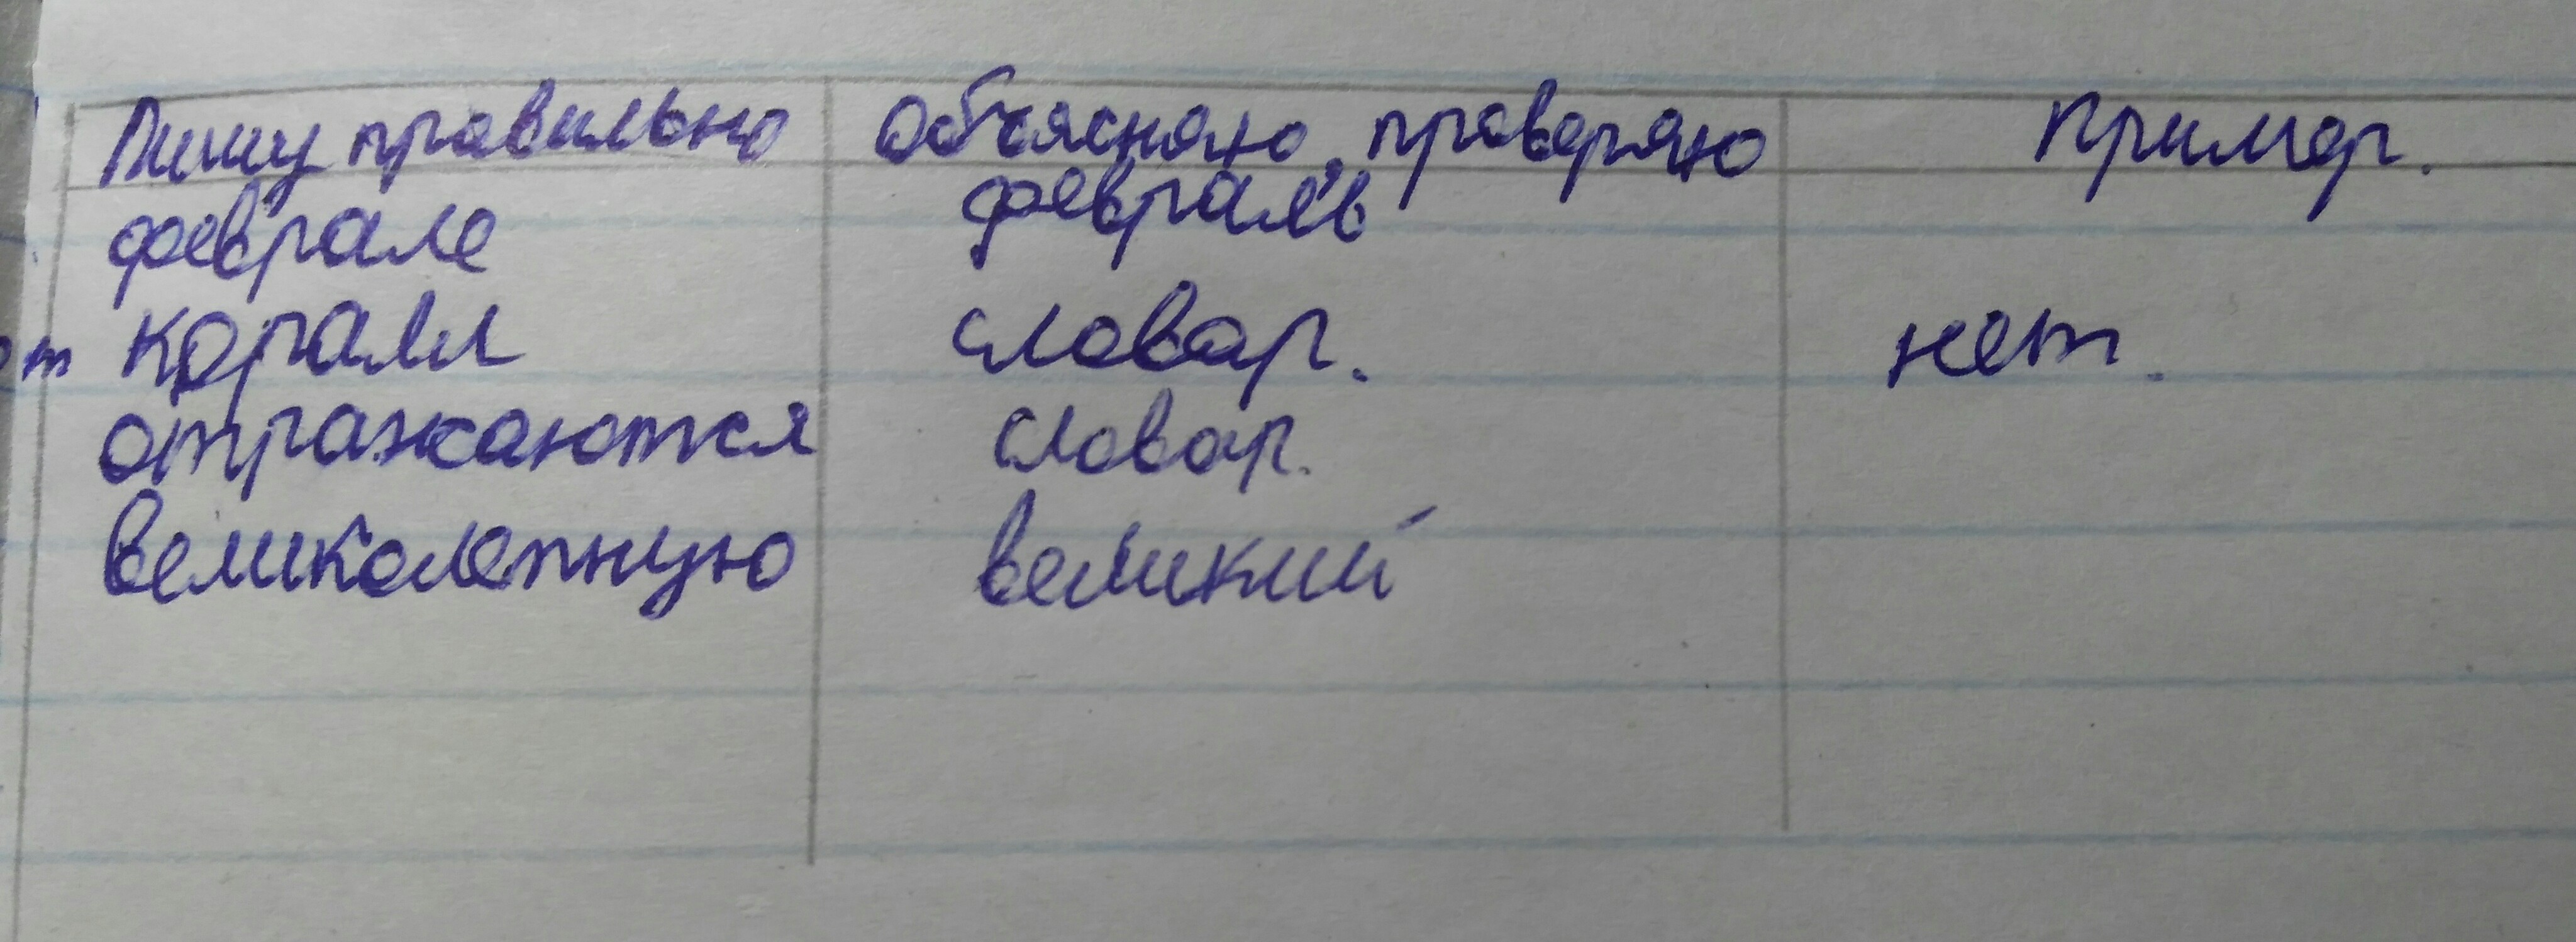 Пишу правильно объясняю, проверяю Пример.
феврале февраль
от коралл словар. нет.
отражаются словар.
великолепную великий